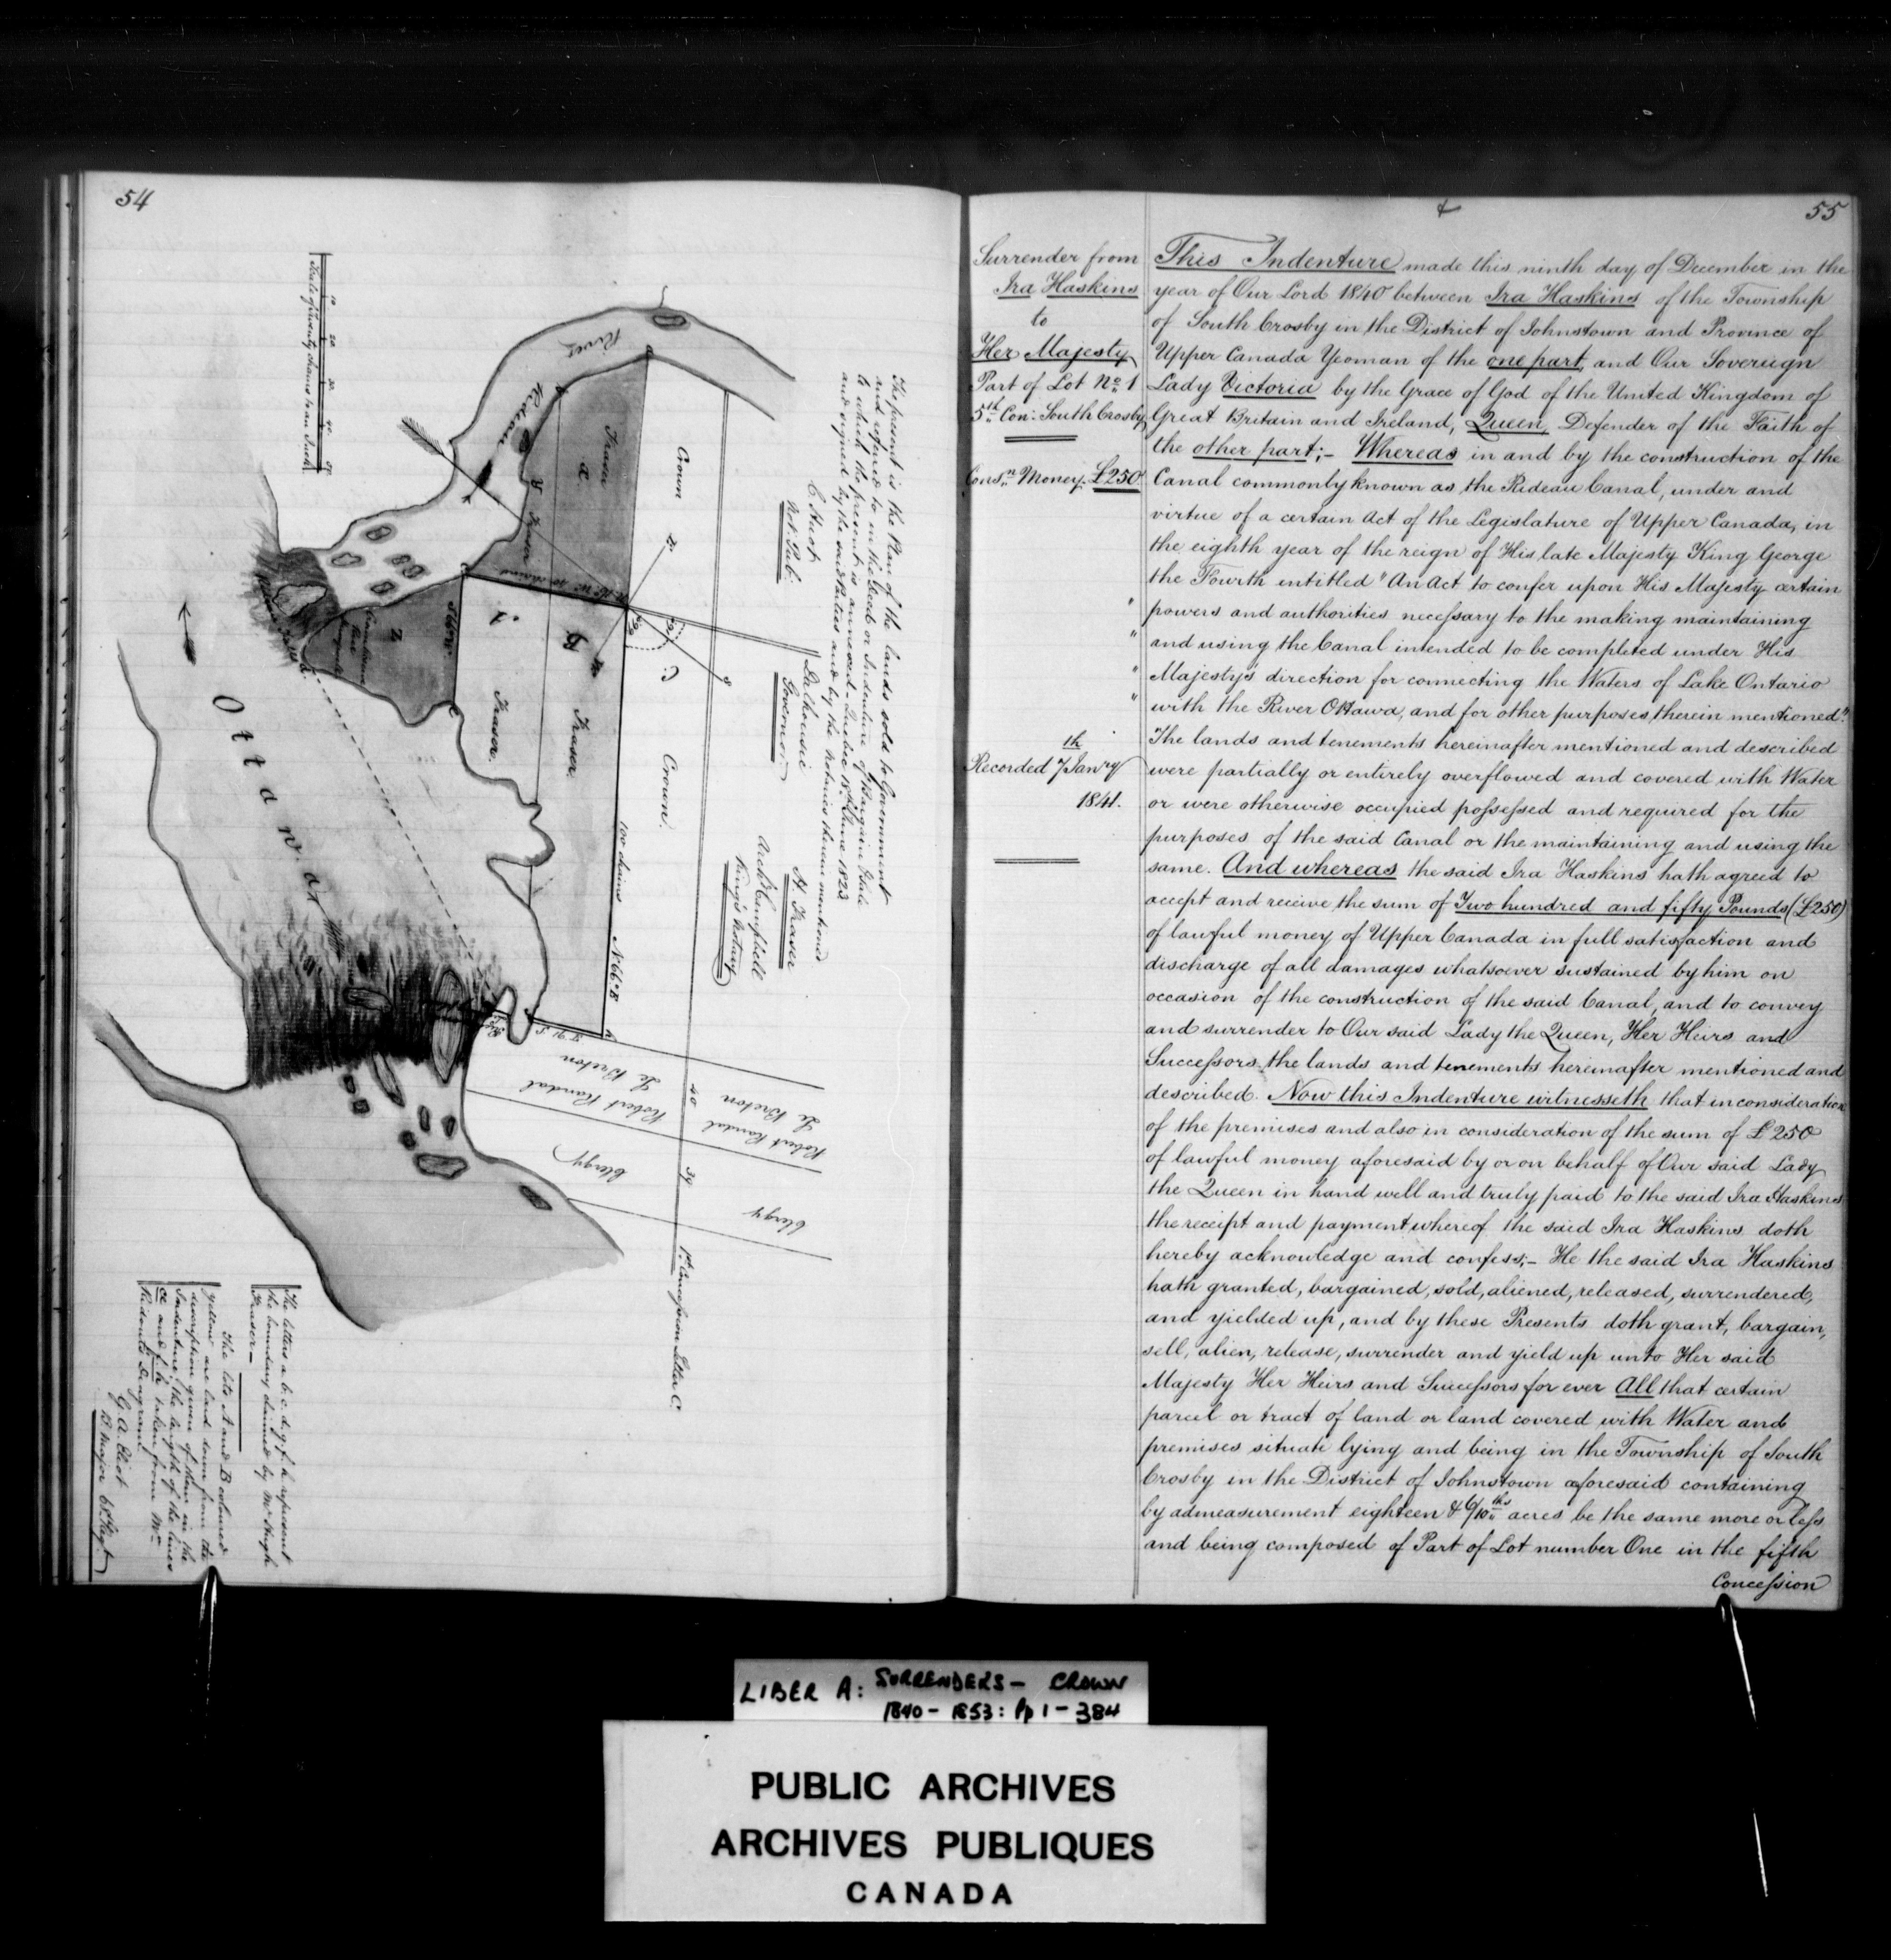 54
Scale of twenty chains to an Inch
10 20 30 40 50
River
Rideau
Fraser
a
Fraser
Crown
Crown
C
B
Fraser
Fraser
Sherr
Z
Ottawa
100 chains
N 66° E
Le Breton
Robert Randal
Clergy
40
Le Breton
Robert Randal
39
Clergy
1st Concession Letter C.
The present is the Plan of the lands sold to Government
and referred to in the Deed or Indenture of Bargain & Sale
to which the present is annexed - Quebec 18th June 1823
and signed by the said Parties and by the Notaries therein mentioned
Not. Pub.
Dalhousie
Governor
H. Fraser
Archd Campbell
King's Notary
The letters a. b. c. d. g. f. h. represent
the boundary claimed by Mr. Hugh
Fraser—
The lots A and B coloured
yellow are laid down from the
description given of them in the
Indenture, the length of the lines
and taken from Mr.
Rideout's Diagram.
G. A. Eliot
B. Major 68th Regt.
55
Surrender from
Ira Haskins
to
Her Majesty
Part of Lot No. 1
5th Con: South Crosby
Consn. Money £250
Recorded 7th Janry
1841.
This Indenture made this ninth day of December in the
year of Our Lord 1840 between Ira Haskins of the Township
of South Crosby in the District of Johnstown and Province of
Upper Canada Yeoman of the one part, and Our Sovereign
Lady Victoria by the Grace of God of the United Kingdom of
Great Britain and Ireland, Queen, Defender of the Faith of
the other part;- Whereas in and by the construction of the
Canal commonly known as the Rideau Canal, under and
virtue of a certain Act of the Legislature of Upper Canada, in
the eighth year of the reign of His late Majesty King George
the Fourth entitled "An Act to confer upon His Majesty certain
" powers and authorities necessary to the making maintaining
" and using the Canal intended to be completed under His
" Majesty's direction for connecting the Waters of Lake Ontario
" with the River Ottawa, and for other purposes therein mentioned".
The lands and tenements hereinafter mentioned and described
were partially or entirely overflowed and covered with Water
or were otherwise occupied possessed and required for the
purposes of the said Canal or the maintaining and using the
same. And whereas the said Ira Haskins hath agreed to
accept and receive the sum of Two hundred and fifty Pounds (£250)
of lawful money of Upper Canada in full satisfaction and
discharge of all damages whatsoever sustained by him on
occasion of the construction of the said Canal, and to convey
and surrender to Our said Lady the Queen, Her Heirs and
Successors the lands and tenements hereinafter mentioned and
described. Now this Indenture witnesseth that in consideration
of the premises and also in consideration of the sum of £250
of lawful money aforesaid by or on behalf of Our said Lady
the Queen in hand well and truly paid to the said Ira Haskins
the receipt and payment whereof the said Ira Haskins doth
hereby acknowledge and confess;- He the said Ira Haskins
hath granted, bargained, sold, aliened, released, surrendered,
and yielded up, and by these Presents doth grant, bargain,
sell, alien, release, surrender and yield up unto Her said
Majesty Her Heirs and Successors for ever All that certain
parcel or tract of land or land covered with Water and
premises situate lying and being in the Township of South
Crosby in the District of Johnstown aforesaid containing
by admeasurement eighteen & 6/10ths acres be the same more or less
and being composed of Part of Lot number One in the fifth
Concession
LIBER A: SURRENDERS - CROWN
1840 - 1853: Pp 1 - 384
PUBLIC ARCHIVES
ARCHIVES PUBLIQUES
CANADA